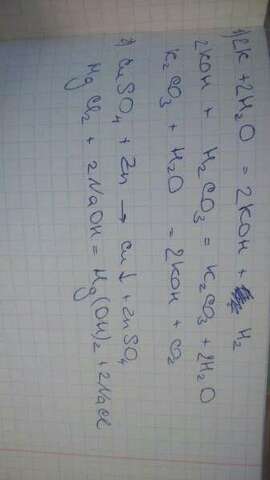 1) 2K + 2H₂O = 2KOH + H₂
2KOH + H₂CO₃ = K₂CO₃ + 2H₂O
K₂CO₃ + H₂O = 2KOH + CO₂
2) CuSO₄ + Zn → Cu↓ + ZnSO₄
HgCl₂ + 2NaOH = Hg(OH)₂ + 2NaCl